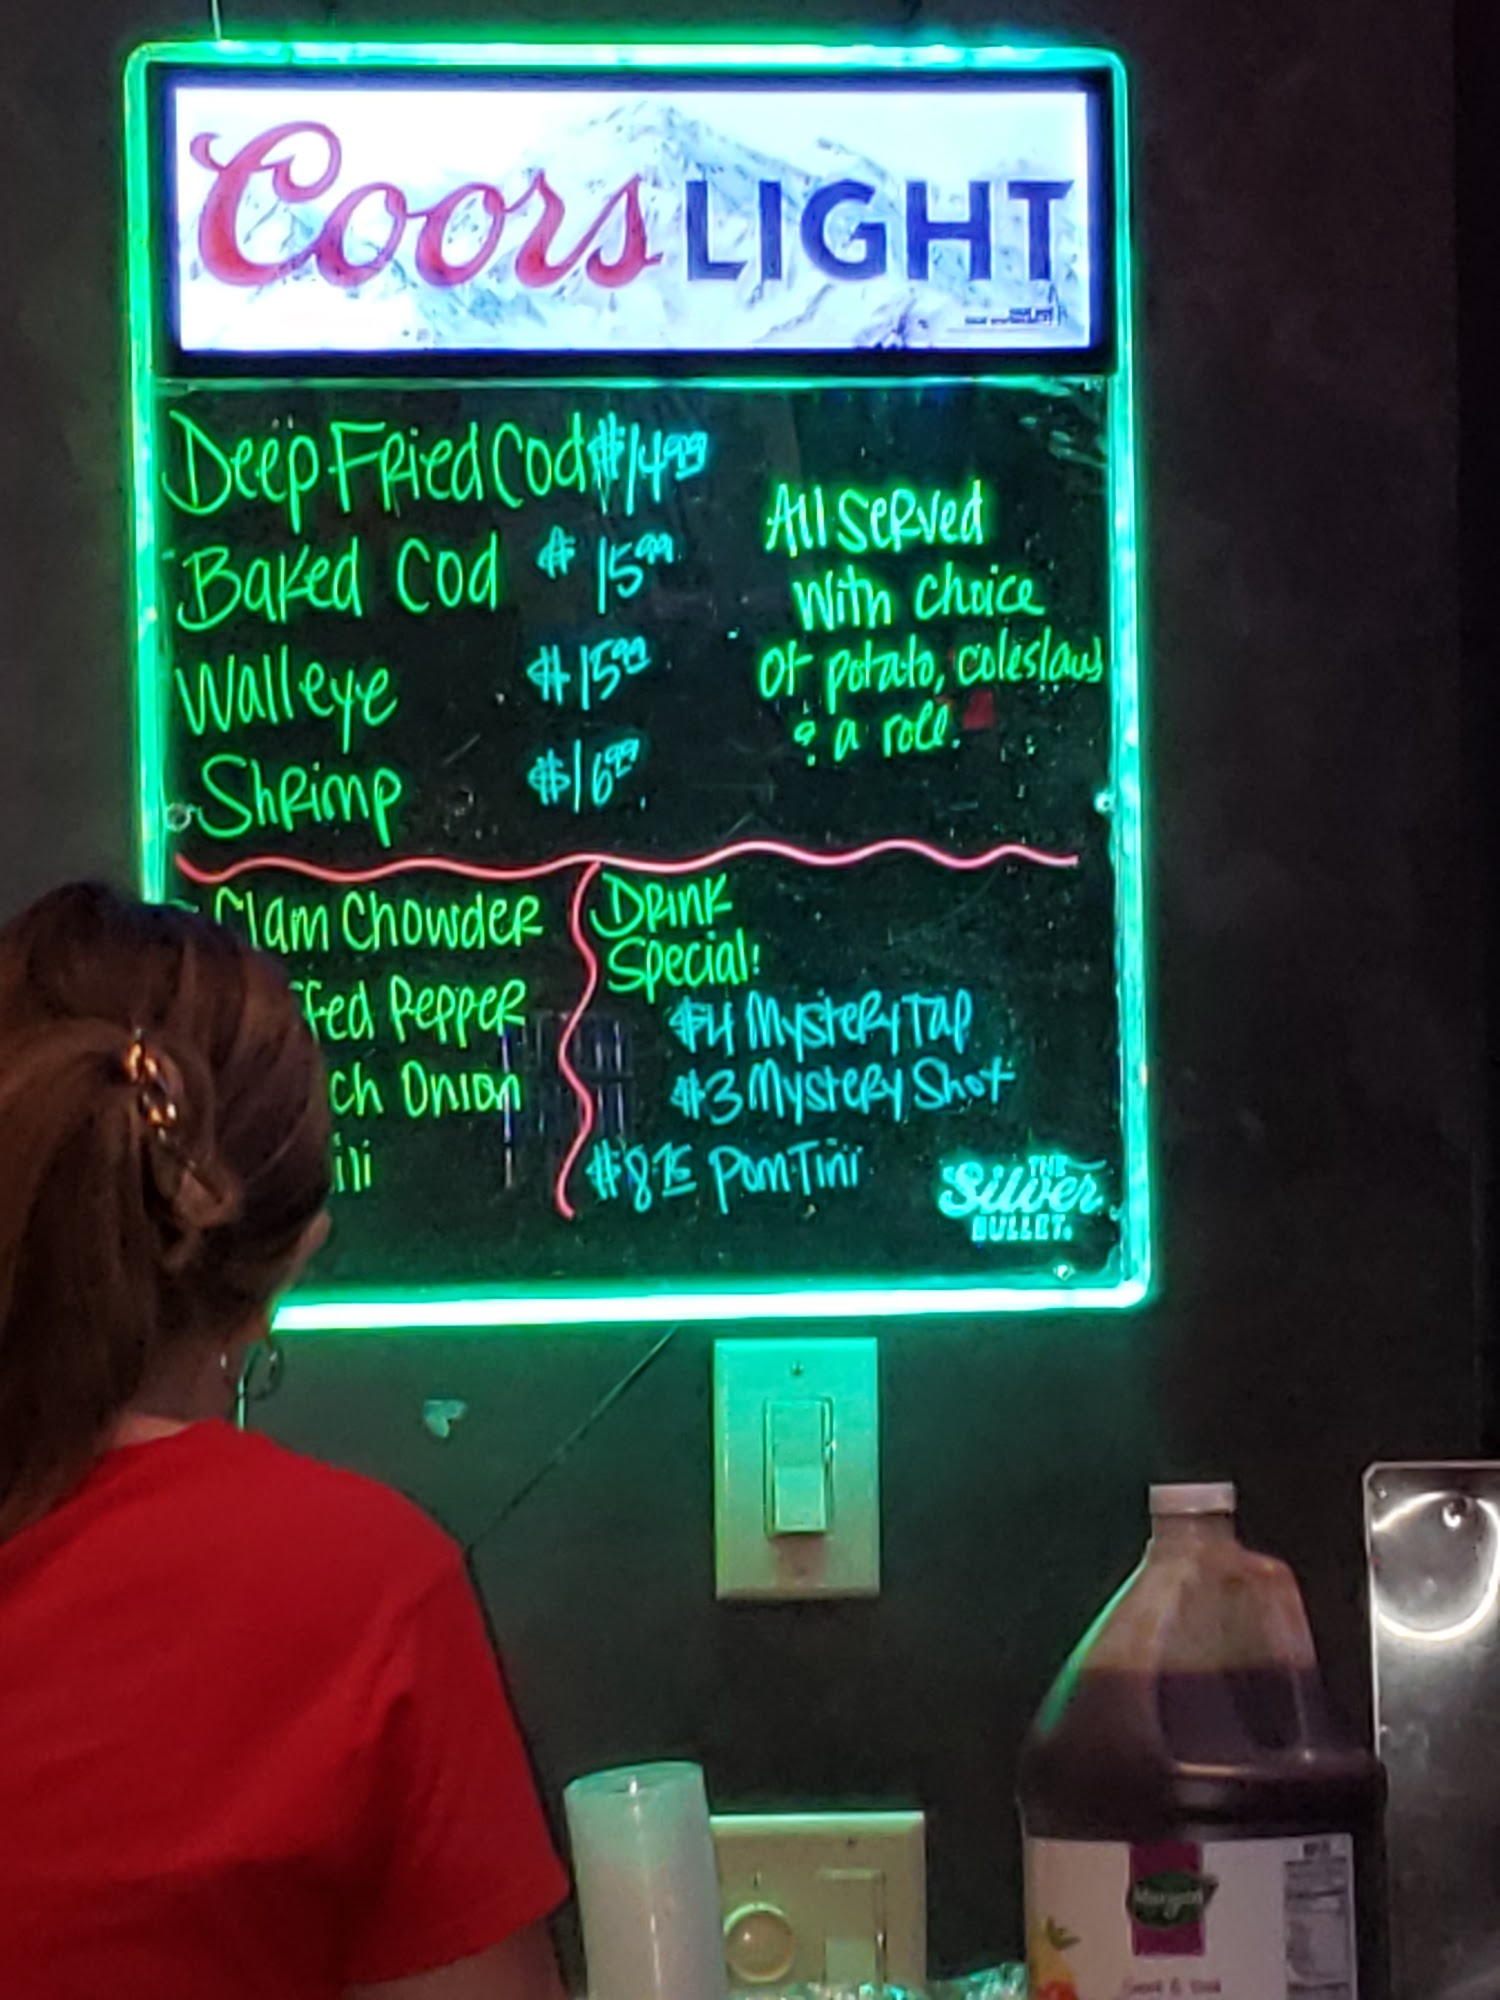 Coors LIGHT
Deep Fried Cod $14.99
Baked Cod $15.99
Walleye $15.99
Shrimp $16.99
All served
with choice
of potato, coleslaw
& a roll.
Clam Chowder
ffed Pepper
ch Onion
ili
Drink
Special!
$4 Mystery Tap
$3 Mystery Shot
$8.75 PomTini
THE
Silver
BULLET.